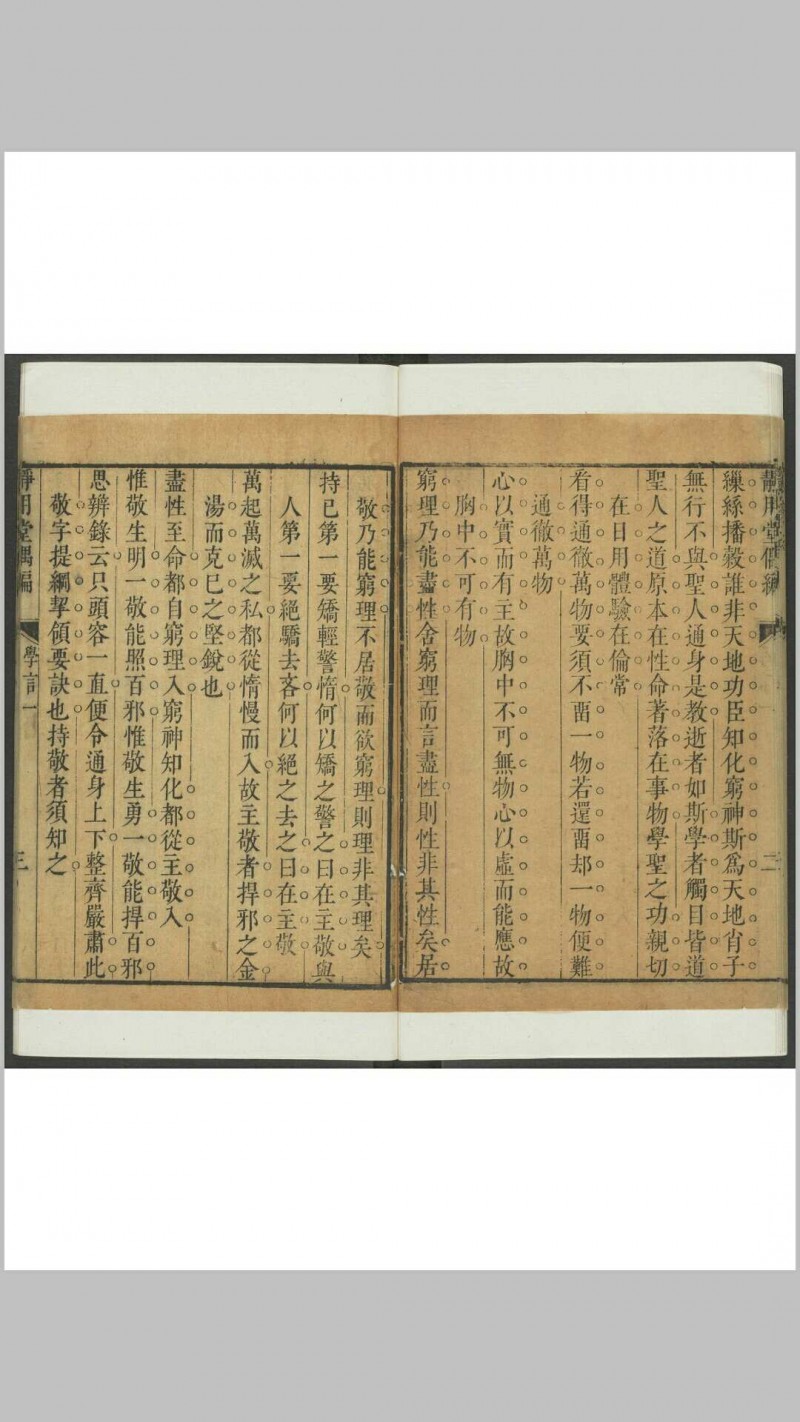 靜用堂偶編
二
繅絲播穀誰非天地功臣知化窮神斯為天地肖子
無行不與聖人通身是教逝者如斯學者觸目皆道
聖人之道原本在性命著落在事物學聖之功親切
在日用體驗在倫常
看得通徹萬物要須不畱一物若還畱却一物便難
通徹萬物
心以實而有主故胸中不可無物心以虛而能應故
胸中不可有物
窮理乃能盡性舍窮理而言盡性則性非其性矣居
敬乃能窮理不居敬而欲窮理則理非其理矣
持已第一要矯輕警惰何以矯之警之曰在主敬與
人第一要絕驕去吝何以絕之去之曰在主敬
萬起萬滅之私都從惰慢而入故主敬者捍邪之金
湯而克已之堅銳也
盡性至命都自窮理入窮神知化都從主敬入
惟敬生明一敬能照百邪惟敬生勇一敬能捍百邪
思辨錄云只頭容一直便令通身上下整齊嚴肅此
敬字提綱挈領要訣也持敬者須知之
靜用堂偶編
學言一
三